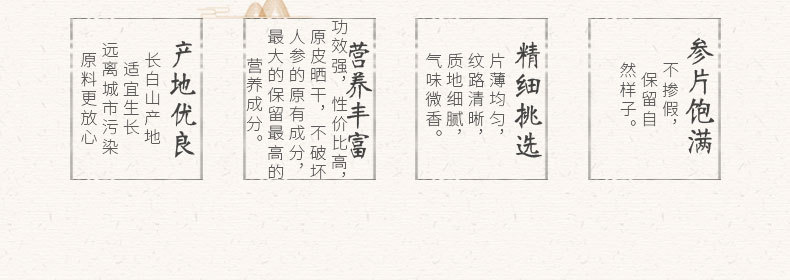 参片饱满
不掺假，
保留自
然样子。
精细挑选
片薄均匀，
纹路清晰，
质地细腻，
气味微香。
营养丰富
功效强，性价比高，
原皮晒干，不破坏
人参的原有成分，
最大的保留最高的
营养成分。
产地优良
长白山产地
适宜生长
远离城市污染
原料更放心